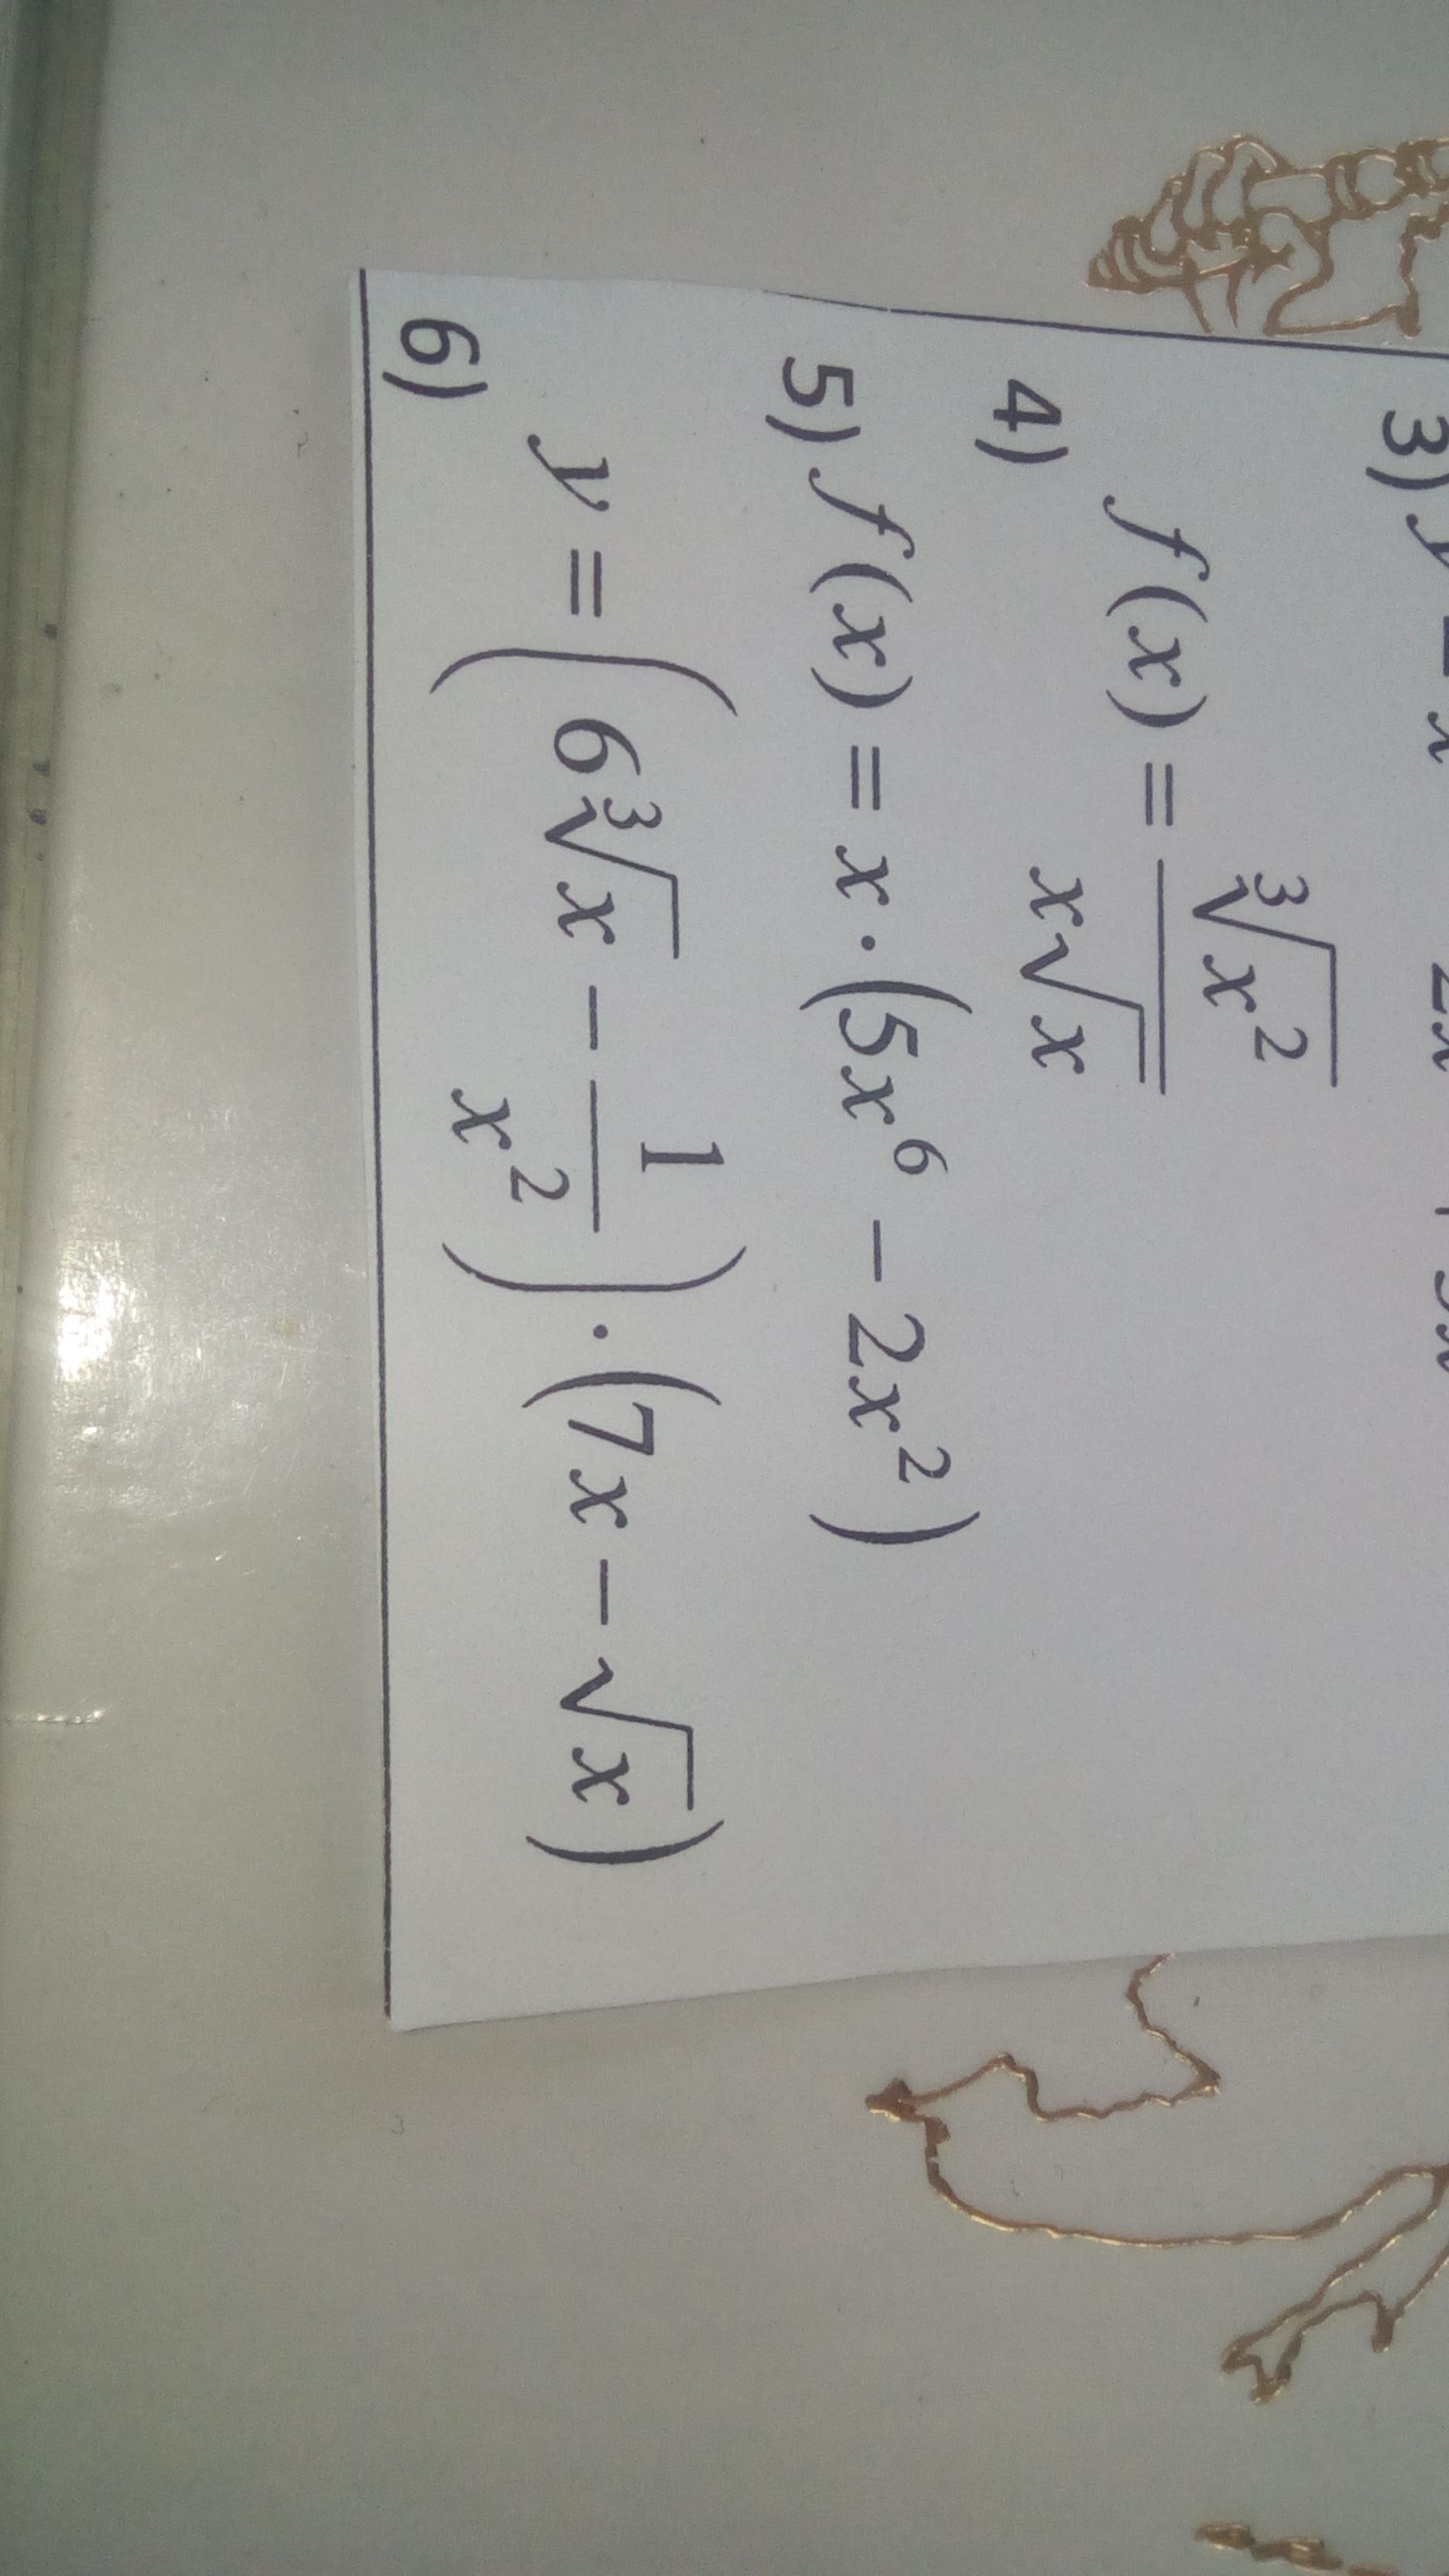 3)
4) f(x) = \frac{\sqrt[3]{x^2}}{x\sqrt{x}}
5) f(x) = x · (5x^6 − 2x^2)
6) y = (6\sqrt[3]{x} − \frac{1}{x^2}) · (7x − \sqrt{x})